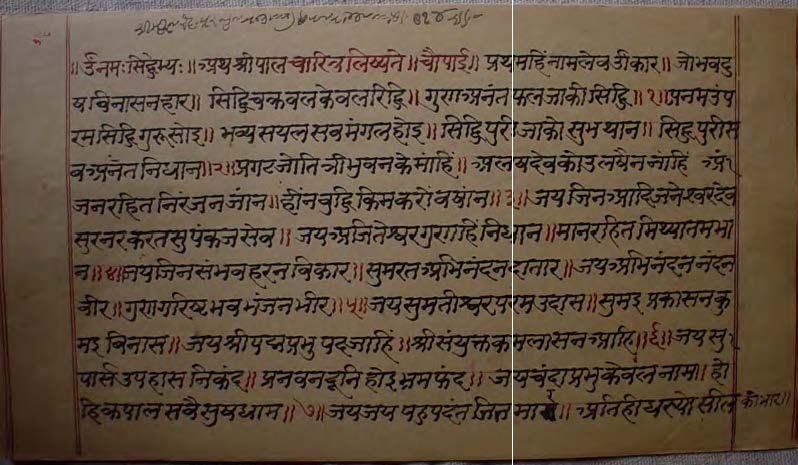 ॥ र्उनमःसिद्धेभ्यः ॥ अथश्रीपालचारित्रलिष्यते ॥ चौपाई ॥ प्रथमहिंनामलेवउीकार ॥ जोभवदु
षविनासनहार ॥ सिद्धिचकवलकेवलरिद्धि ॥ गुराअनंतफलजाकोसिद्धि ॥१॥ प्रनमउंप
रमसिद्धिगुरुसोइ ॥ भव्यसयलसवमंगलहोइ ॥ सिद्धिपुरीजाकोसुभथान ॥ सिद्धपुरीस
वअनंतनिधान ॥२॥ प्रगटजोतित्रीभुवनकेमांहिं ॥ अलषदेवकोउलषैनांहिं
जनरहितनिरंजनजांन ॥ हींनवुद्धिकिमकरोंवषांन ॥३॥ जयजिनआदिजनेस्वरदेव
सुरनरकरतसुपंकजसेव ॥ जयअजितेश्वरगुराहिंनिधान ॥ मानरहितमिथ्यातमभा
न ॥४॥ जयजिनसंभवहरनविकार ॥ सुमरतअभिनंदनदातार ॥ जयअभिनंदननंदन
वीर ॥ गुरागरिष्टभवभंजनभीर ॥५॥ जयसुमतीश्वरपरमउदास ॥ सुमइप्रकासनकु
मइविनास ॥ जयश्रीपद्मप्रभुपदजाहिं ॥ श्रीसंयुक्तकमलासनआहि ॥६॥ जयसु
पार्सउपहासनिकंद ॥ प्रनवनदूनिहोइभ्रमफंद ॥ जयचंदाप्रभुकेवलनामा ॥ हो
हिकपालसवैसुषधाम ॥७॥ जयजयपहुपदंतजिन